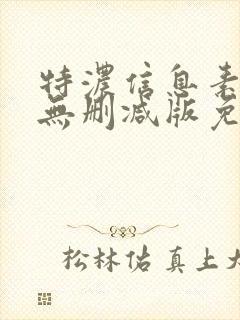 特濃信息素
無刪减版免
松林佑真上大